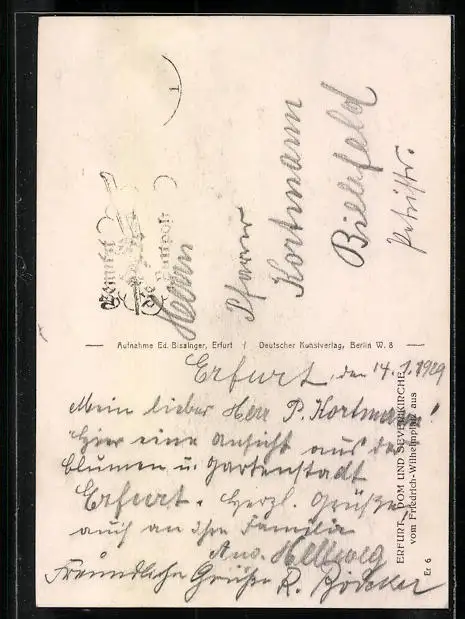 Benutzt
die Luftpost
Herrn
Pfarrer
Kortmann
Bielefeld
Petristr.
Aufnahme Ed. Bissinger, Erfurt / Deutscher Kunstverlag, Berlin W. 8
Erfurt, den 14.1.1929
Mein lieber Herr P. Kortmann!
Hier eine Ansicht aus der
Blumen u. Gartenstadt
Erfurt. Herzl. Grüße,
auch an ihre Familie
Hellweg
Freundliche Grüße R.
ERFURT, DOM UND SEVERIKIRCHE
vom Friedrich-Wilhelmplatz aus
Er 6